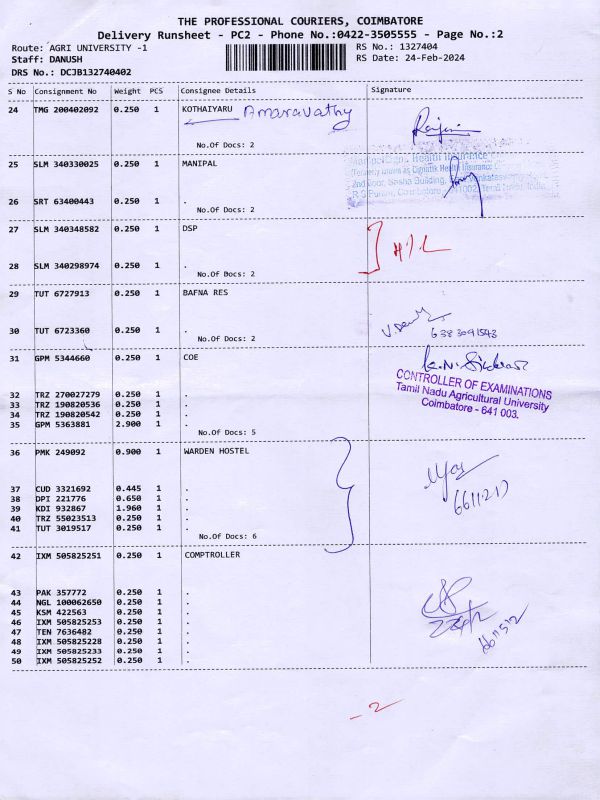 THE PROFESSIONAL COURIERS, COIMBATORE
Delivery Runsheet - PC2 - Phone No.:0422-3505555 - Page No.:2
Route: AGRI UNIVERSITY -1 RS No.: 1327404
Staff: DANUSH RS Date: 24-Feb-2024
DRS No.: DCJB132740402
S No Consignment No Weight PCS Consignee Details Signature
24 TMG 200402092 0.250 1 KOTHAIYARU Amaravathy
No.Of Docs: 2
25 SLM 340330025 0.250 1 MANIPAL
26 SRT 63400443 0.250 1 .
No.Of Docs: 2
27 SLM 340348582 0.250 1 DSP
28 SLM 340298974 0.250 1 .
No.Of Docs: 2
29 TUT 6727913 0.250 1 BAFNA RES
30 TUT 6723360 0.250 1 .
6383091543
No.Of Docs: 2
31 GPM 5344660 0.250 1 COE
CONTROLLER OF EXAMINATIONS
Tamil Nadu Agricultural University
Coimbatore - 641 003.
32 TRZ 270027279 0.250 1 .
33 TRZ 190820536 0.250 1 .
34 TRZ 190820542 0.250 1 .
35 GPM 5363881 2.900 1 .
No.Of Docs: 5
36 PMK 249092 0.900 1 WARDEN HOSTEL
37 CUD 3321692 0.445 1 .
38 DPI 221776 0.650 1 .
39 KDI 932867 1.960 1 .
40 TRZ 55023513 0.250 1 .
41 TUT 3019517 0.250 1 .
No.Of Docs: 6
42 IXM 505825251 0.250 1 COMPTROLLER
43 PAK 357772 0.250 1 .
44 NGL 100062650 0.250 1 .
45 KSM 422563 0.250 1 .
46 IXM 505825253 0.250 1 .
47 TEN 7636482 0.250 1 .
48 IXM 505825228 0.250 1 .
49 IXM 505825233 0.250 1 .
50 IXM 505825252 0.250 1 .
- 2